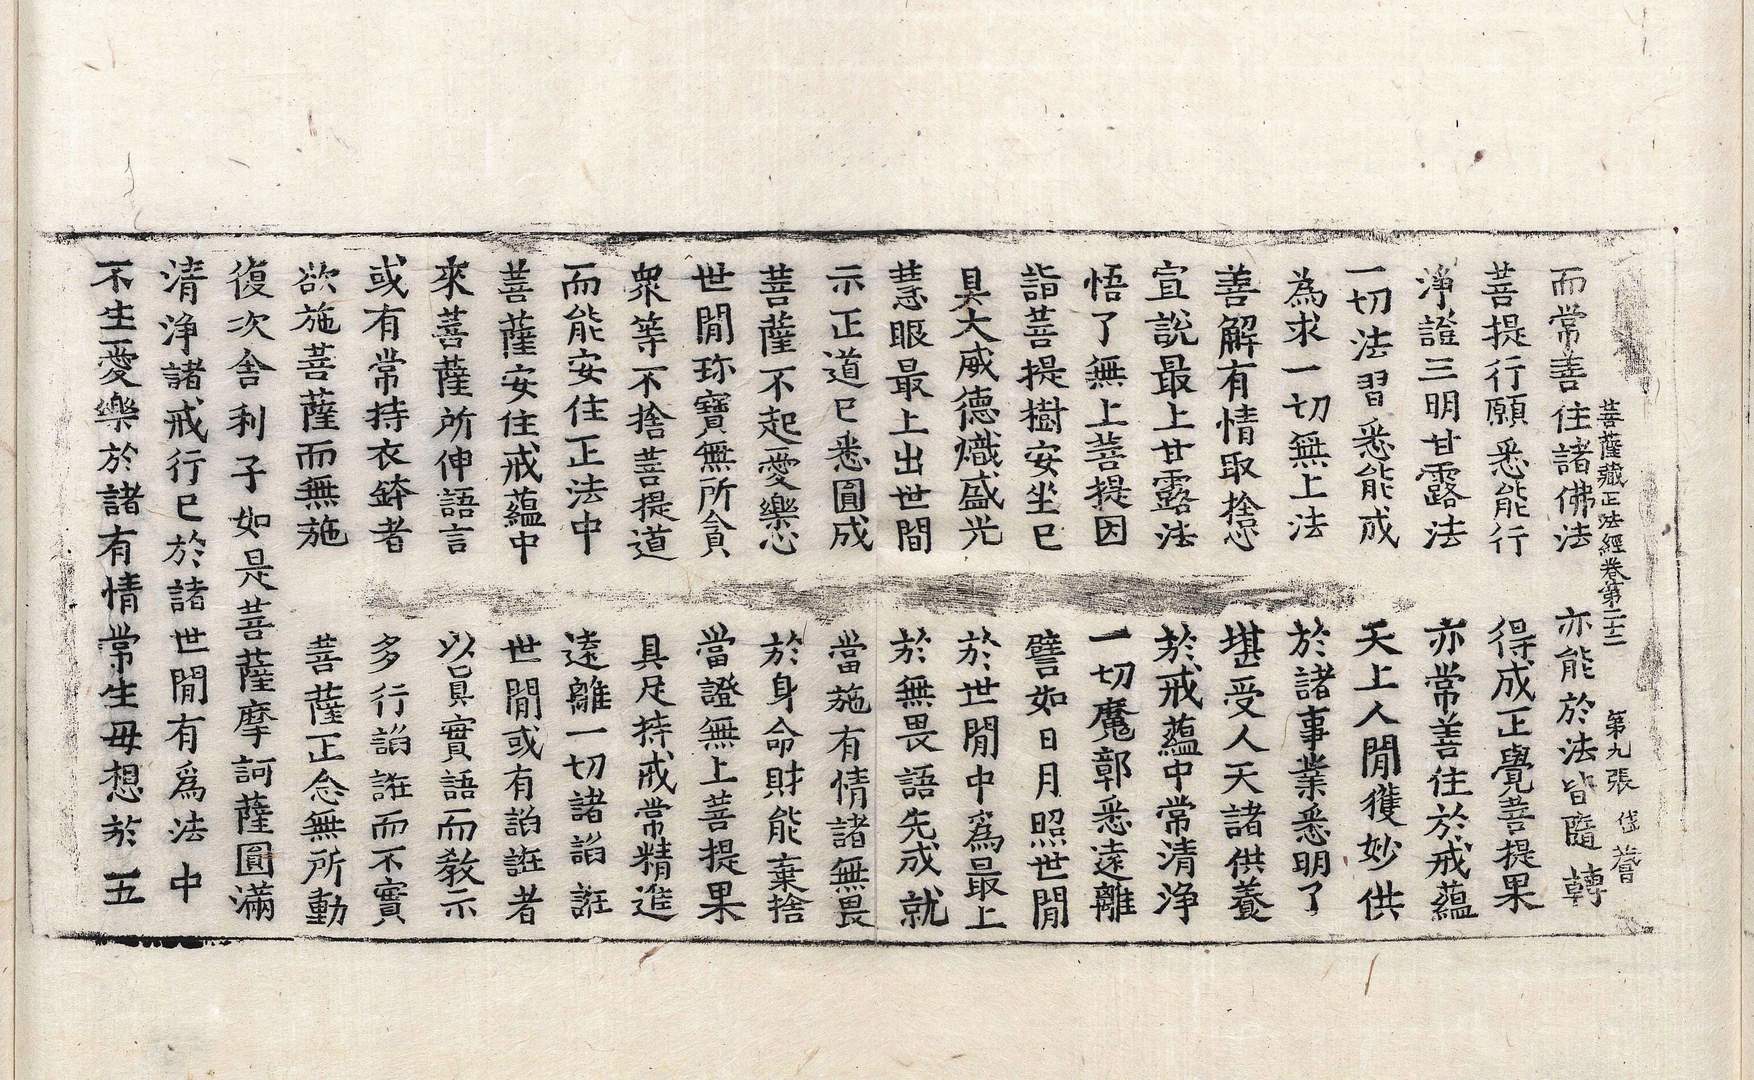 菩薩藏正法經卷第二十二 第九張 岱
而常善住諸佛法 亦能於法皆隨轉
菩提行願悉能行 得成正覺菩提果
淨證三明甘露法 亦常善住於戒蘊
一切法習悉能成 天上人間獲妙供
為求一切無上法 於諸事業悉明了
善解有情取捨心 堪受人天諸供養
宣說最上甘露法 於戒蘊中常清淨
悟了無上菩提因 一切魔鄣悉遠離
詣菩提樹安坐已 譬如日月照世間
具大威德熾盛光 於世間中爲最上
慧眼最上出世間 於無畏語先成就
示正道已悉圓成 當施有情諸無畏
菩薩不起愛樂心 於身命財能棄捨
世間珎寶無所貪 當證無上菩提果
衆等不捨菩提道 具足持戒常精進
而能安住正法中 遠離一切諸諂誑
菩薩安住戒蘊中 世間或有諂誑者
來菩薩所伸語言 以真實語而教示
或有常持衣鉢者 多行諂誑而不實
欲施菩薩而無施 菩薩正念無所動
復次舍利子如是菩薩摩訶薩圓滿
清淨諸戒行已於諸世間有爲法中
不生愛樂於諸有情常生母想於五